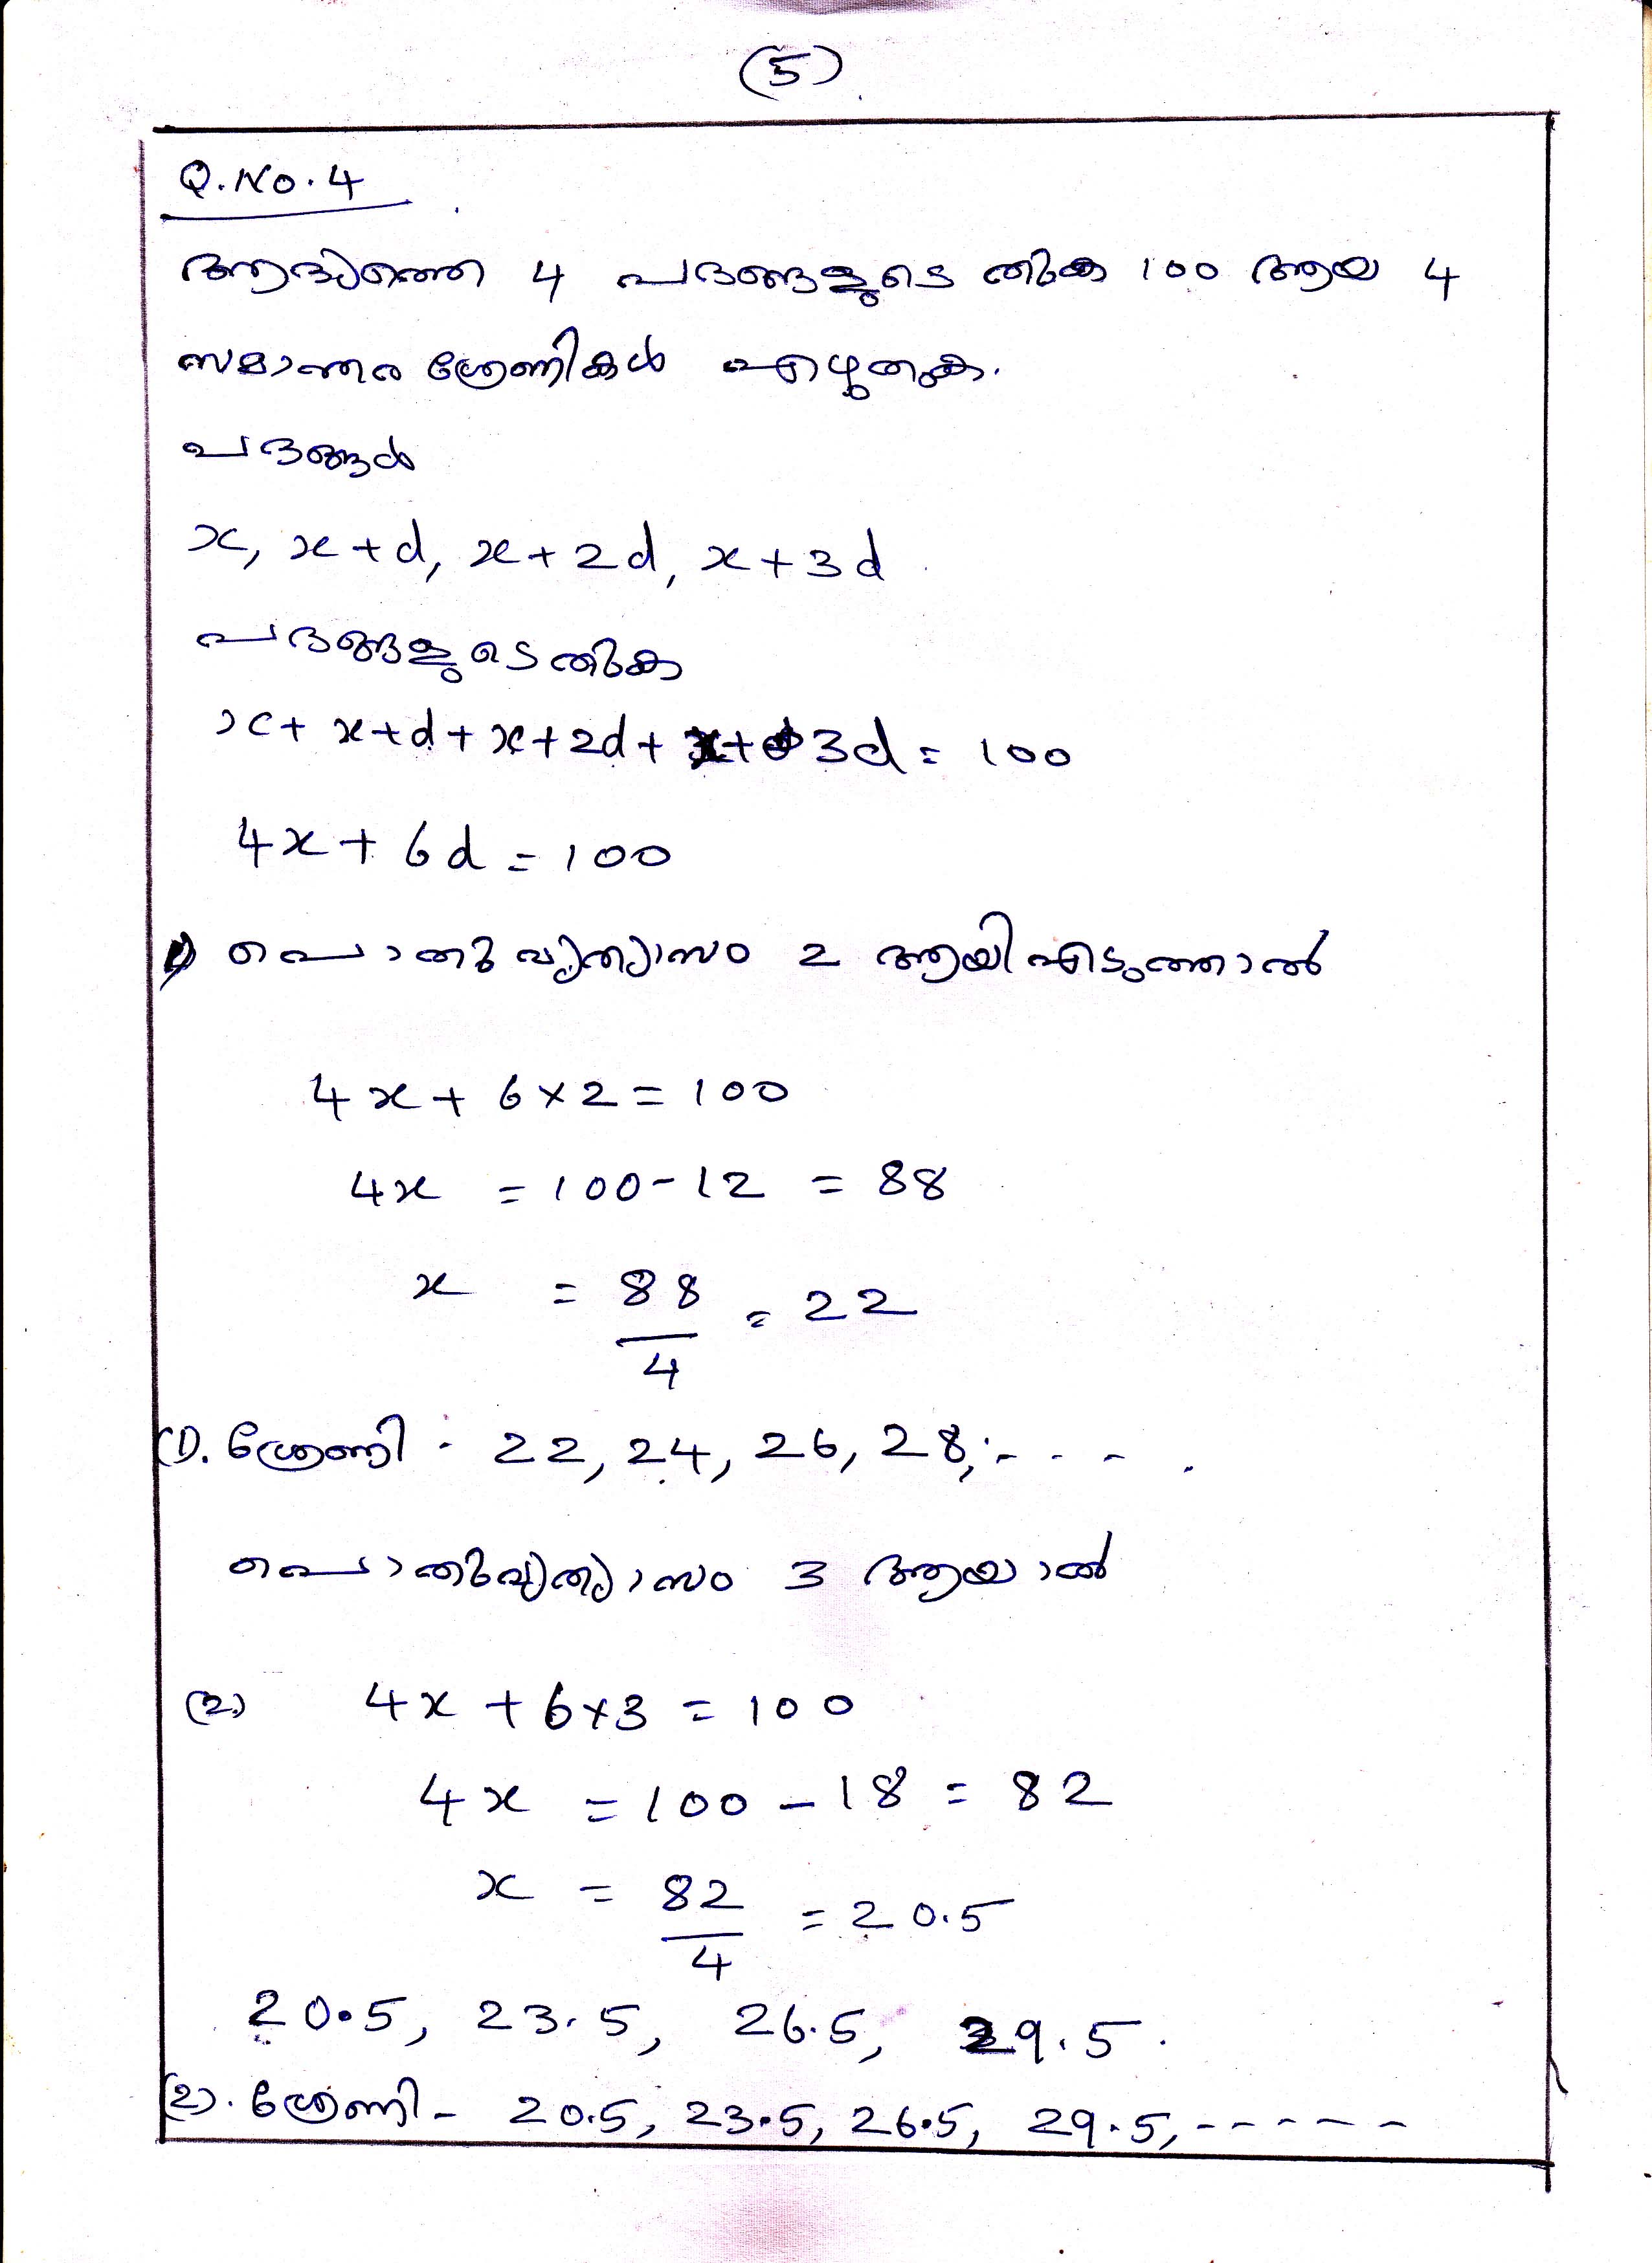 (5)
Q.No.4
ആദ്യത്തെ 4 പദങ്ങളുടെ തുക 100 ആയ 4
സമാന്തര ശ്രേണികൾ എഴുതുക.
പദങ്ങൾ
x, x+d, x+2d, x+3d
പദങ്ങളുടെ തുക
x+ x+d+x+2d+ x+3d = 100
4x+6d=100
1) പൊതുവ്യത്യാസം 2 ആയി എടുത്താൽ
4x+ 6×2=100
4x = 100-12 = 88
x = 88/4 = 22
(1). ശ്രേണി - 22, 24, 26, 28, - - - .
പൊതുവ്യത്യാസം 3 ആയാൽ
(2) 4x + 6×3 = 100
4x = 100 - 18 = 82
x = 82/4 = 20.5
20.5, 23.5, 26.5, 29.5.
(2). ശ്രേണി - 20.5, 23.5, 26.5, 29.5, - - - - -